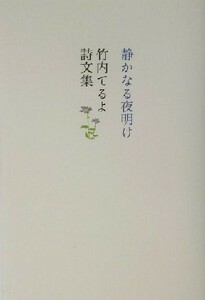 静かなる夜明け
竹内てるよ
詩文集